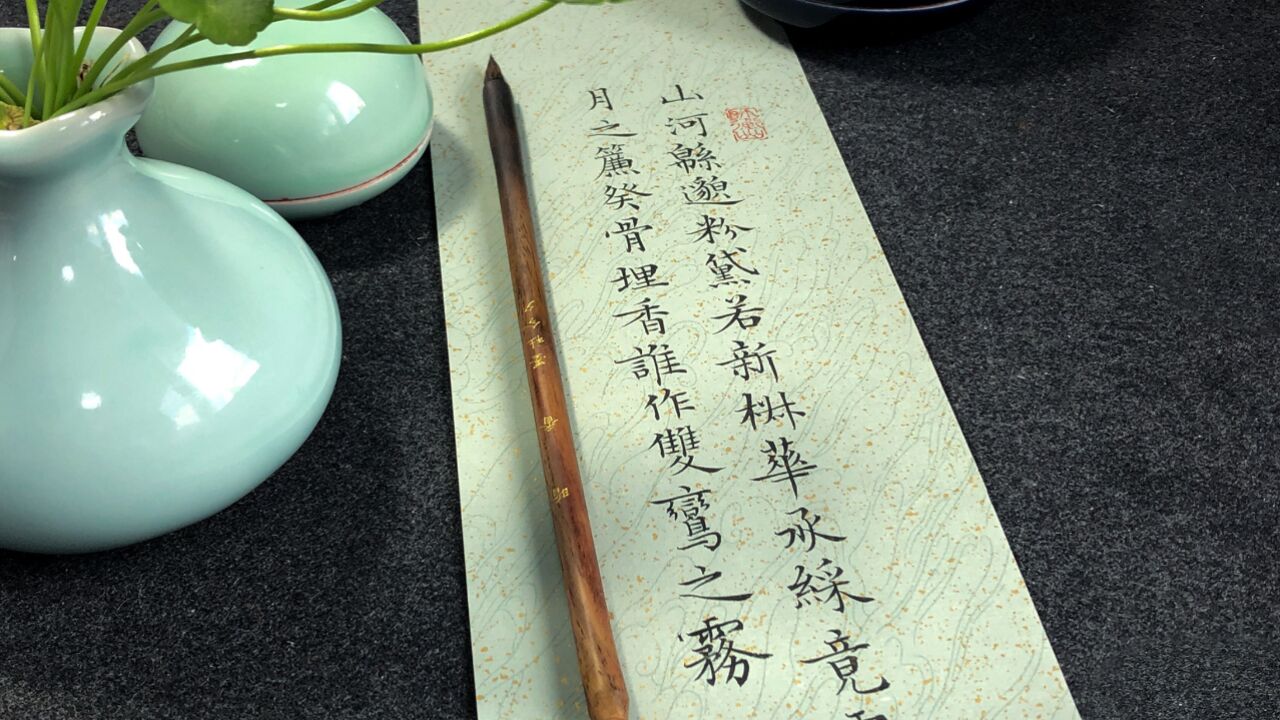 山河緜邈粉黛若新椒華承綵竟
月之簾癸骨埋香誰作雙鸞之霧